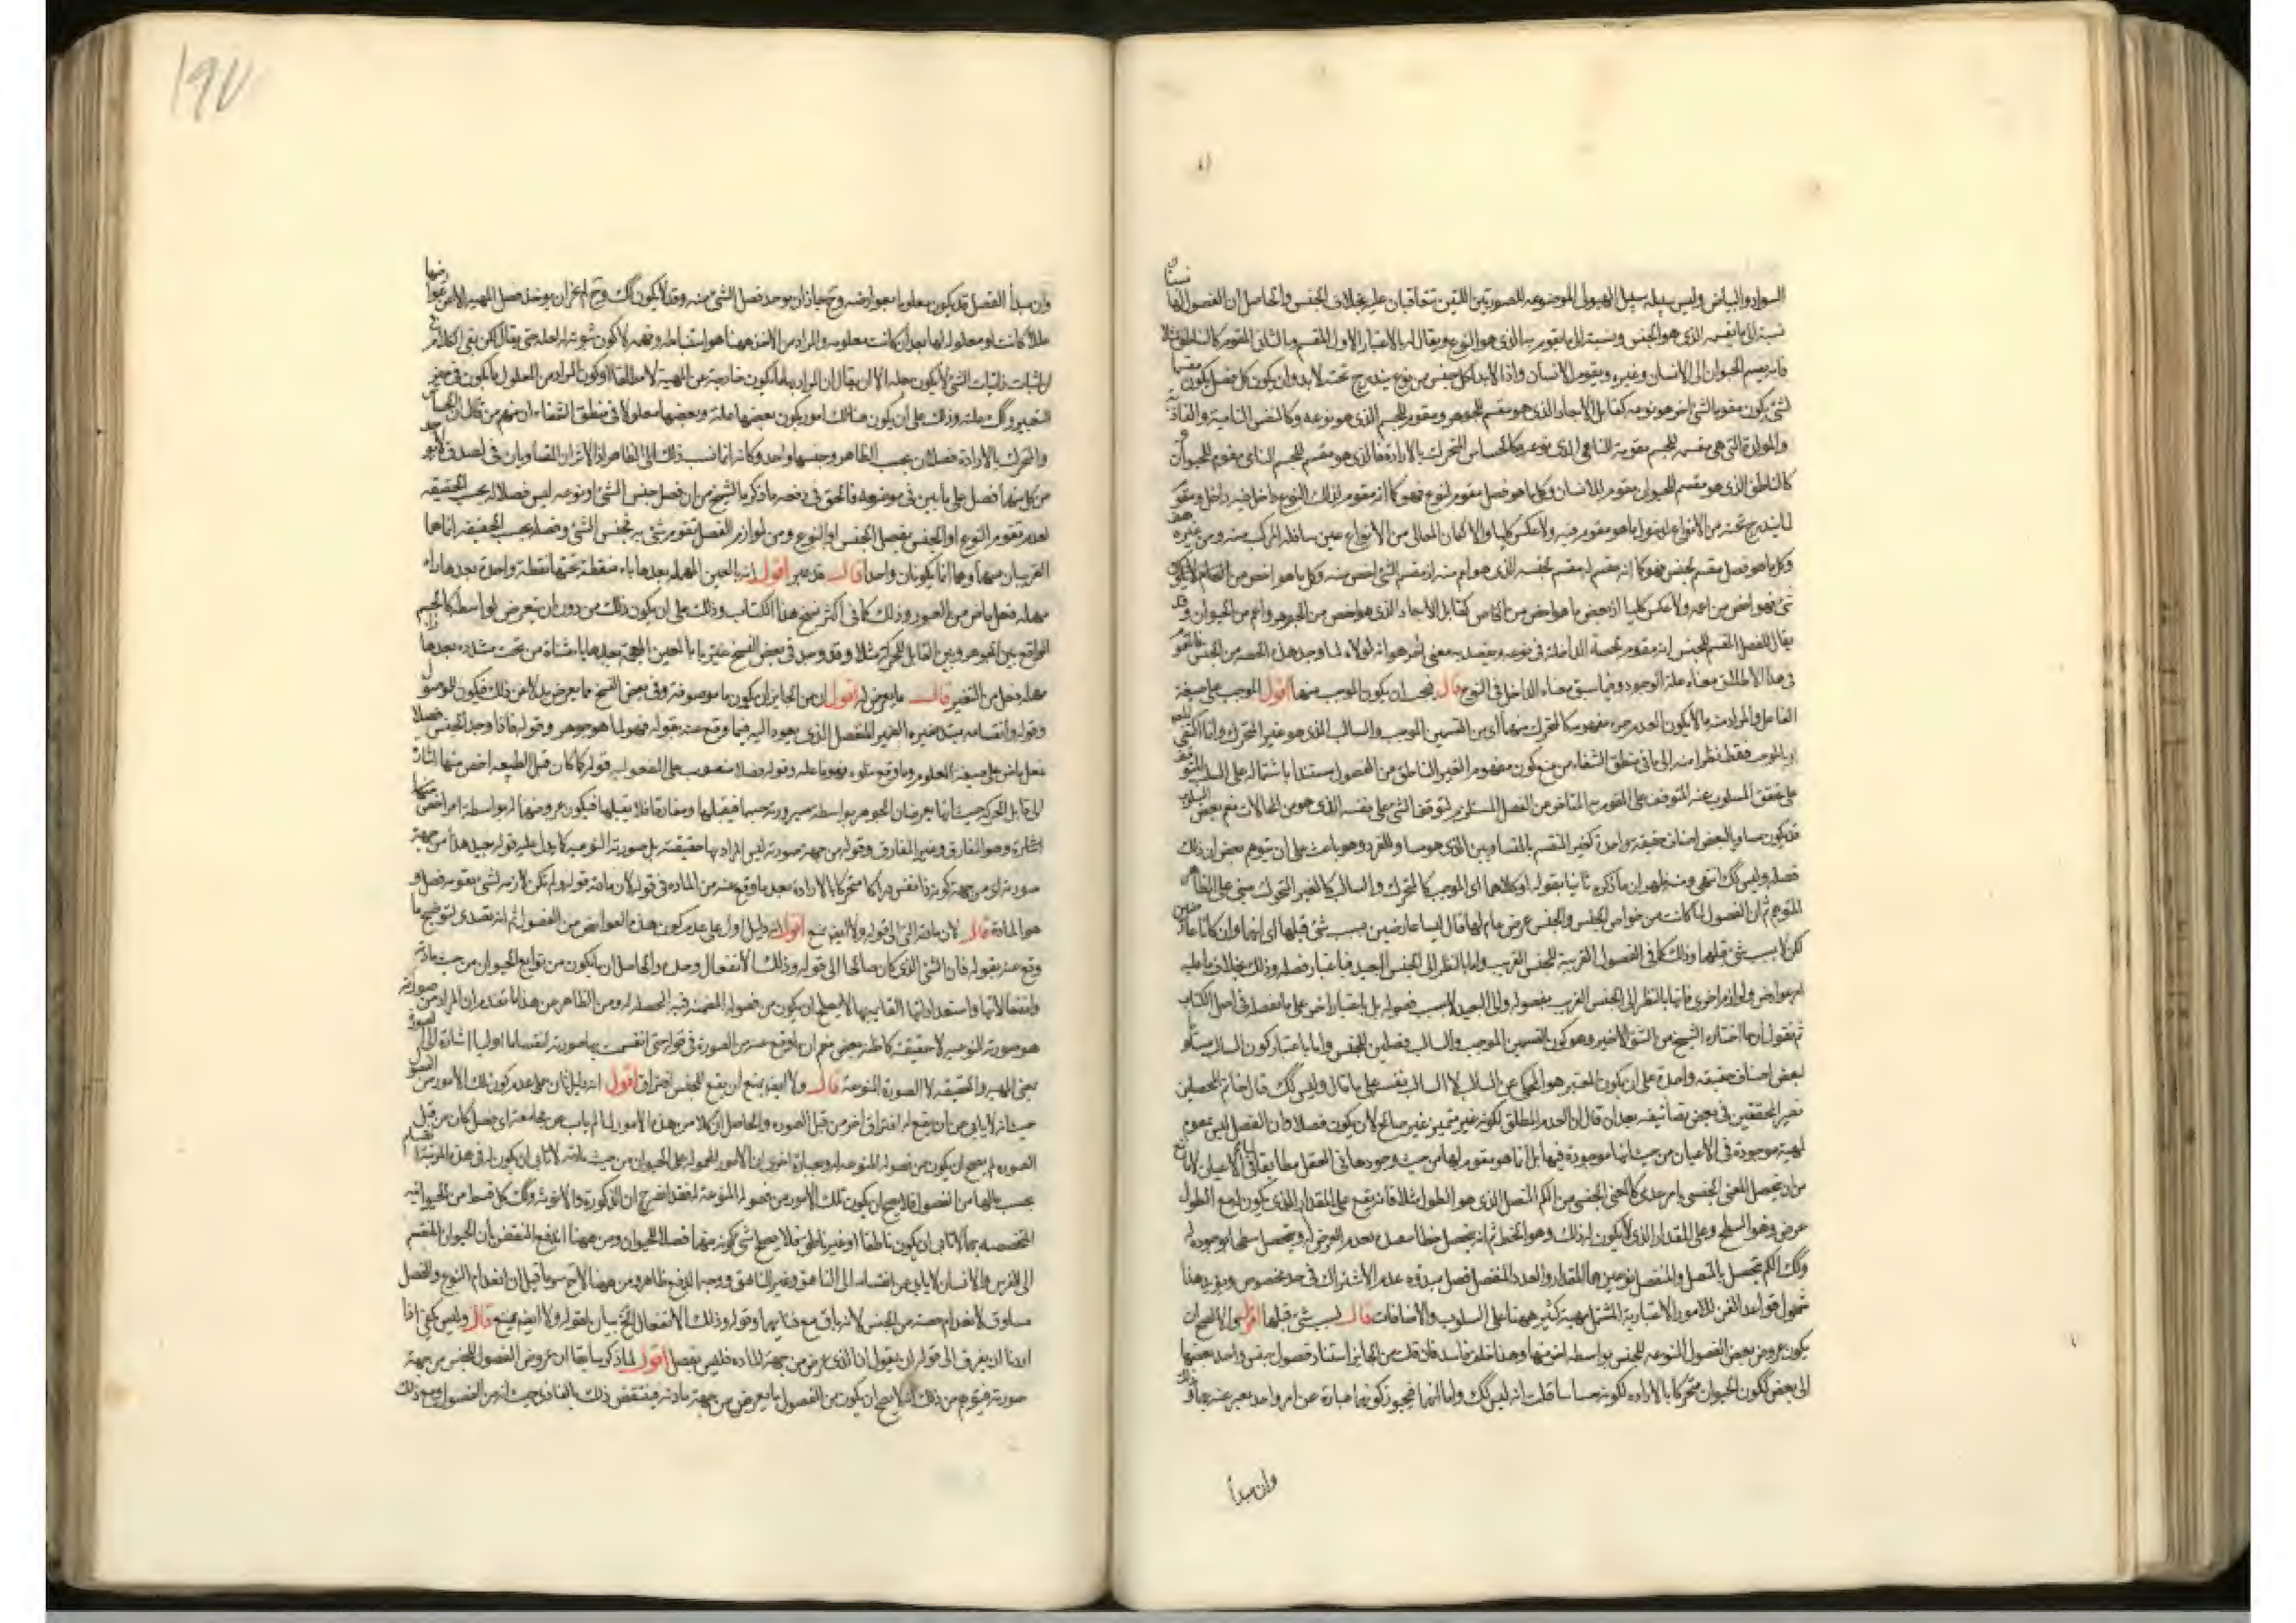 السواد والبياض وليس سبيله سبيل الهيولى الموضوعه للصورتين اللتين تتعاقبان عليه بخلاف الجنس والحاصل ان الفصول لها
نسبة الى ما تقسمه الذى هو الجنس ونسبة الى ما يقوم به الذى هو النوع ويقال له بالاعتبار الاول المقسم وبالثانى المقوم كالناطق مثلا
فانه يقسم الحيوان الى الانسان وغيره ويقوم الانسان واذ لابد لكل جنس من نوع يندرج تحته لابد وان يكون كل فصل يكون مقسما
لشئ يكون مقوما لشئ اخر هو نوعه كقابل الابعاد الذى هو مقسم للجوهر ومقوم للجسم الذى هو نوعه وكالنفس النامية والغاذية
والمولدة التى هى مقسمه للجسم مقومة للنامى الذى نوعه وكالحساس المتحرك بالارادة فالذى هو مقسم للجسم النامى مقوم للحيوان
كالناطق الذى هو مقسم للحيوان مقوم للانسان وكل ما هو فصل مقوم لنوع فهو كما انه مقوم لذلك النوع داخل فيه
لما يندرج تحته من الانواع ولا عكس كليا والا لكان العالى من الانواع عين سافله المركب منه ومن غيره
وكل ما هو فصل مقسم لجنس فهو كما انه مقسم له مقسم لجنسه الذى هو اعم منه اذ مقسم الشئ اخص منه وكل ما هو اخص من
شئ فهو اخص من اعمه ولا عكس كليا اذ بعض ما هو اخص من الخاص كقابل الابعاد الذى هو اخص من الجوهر واعم من الحيوان وقد
يقال للفصل المقسم للجنس انه مقوم لحصة الداخلة فى نوعه ويقصد به معنى اخر هو انه لولاه لما وجد هذه الحصه من الجنس فالمقوم
فى هذا الاطلاق معناه علة الوجود وفيما سبق معناه الداخل فى النوع قال فيجب ان يكون الموجب منهما اقول الموجب على صيغة
الفاعل والمراد منه ما لا يكون العدم جزء مفهومه كالمتحرك منهما أى من القسمين الموجب والسالب الذى هو غير المتحرك وانما اكتفى
او بالموجب فقط نظرا منه الى ما فى منطق الشفاء من منع كون مفهوم الغير الناطق من الفصول مستندا باشتماله على السلب
على تعقل المسلوب عنه المتوقف على المقوم به المتاخر عن الفصل المستلزم لتوقف الشئ على نفسه الذى هو من المحالات نعم بعض
قد يكون مساويا لبعض اصناف حقيقة واحدة كغير المنقسم بالمتساويين الذى هو مساو للفرد وهو باعث على ان يتوهم بعض ان ذلك
فصله وليس كك انتهى ومنه يظهر ان ما ذكره ثانيا بقوله او كلاهما اى الموجب كالمتحرك والسالب كالغير المتحرك مبنى على الظاهر
المتوهم ثم ان الفصول لما كانت من خواص الجنس والجنس عرض عام لها قال ليسا عارضين بسبب شئ قبلها اى انهما وان كانا عارضين
لكن لا بسبب شئ قبلها وذلك كما فى الفصول القريبة للجنس القريب واما بالنظر الى الجنس البعيد فباعتبار فصله وذلك بخلاف ما عليه
امر عوارض ولوازم اخرى فانها بالنظر الى الجنس القريب بفصوله والى البعيد لا بسبب فصوله بل باعتبار اخر على ما يفصل فى اصل الكتاب
ثم نقول ان ما اختاره الشيخ من الشق الاخير وهو كون القسمين الموجب والسالب فصلين للجنس واما باعتبار كون السالب مساو
لبعض اصناف حقيقة واحدة على ان يكون المعتبر هو المحكى عن السلب لا السالب نفسه على ما قال وليس كك قال خاتم المحصلين
نصير المحققين فى بعض تصانيفه بعد ان قال ان العدم المطلق لكونه غير متميز غير صالح لان يكون فصلا وان الفصل ليس بمقوم
لمهية موجودة فى الاعيان من حيث انها موجودة فيها بل انما هو مقوم لها من حيث وجودها فى العقل مطابقا فى الاعيان
من ان يحصل المعنى الجنسى بامر عدمى كالمعنى الجنسى من الكم المتصل الذى هو الطول مثلا فانه يقع على المقدار الذى يكون له مع الطول
عرض وهو السطح وعلى المقدار الذى لا يكون له ذلك وهو الخط ثم انه يتحصل خطا بفصل بعدم العرض له ويتحصل سطحا بوجوده له
وكك الكم يتحصل بالمتصل والمنفصل نوعين هما المقدار والعدد والمنفصل فصل مبدؤه عدم الاشتراك فى حد مخصوص ويؤيد هذا
شمول قواعد الفن للامور الاعتبارية المشتمل مهية كثير منها على السلوب والاضافات قال بسبب شئ قبلها اقول والا لصح ان
يكون عروض بعض الفصول المنوعه للجنس بواسطه اخر منها وهذا خلف فاسد فان قلت من الجايز استناد فصول جنس واحد بعضها
الى بعض ككون الحيوان متحركا بالاراده لكونه حساسا قلت انه ليس كك واما انهما فيجوز كونهما عبارة عن امر واحد يعبر عنه بهما
وان مبدأ
١٩٧
وان مبدأ الفصل قد يكون معلوما بعوارضه وح جاز ان يوخذ فصل الشئ منه وقد لا يكون كك وح لم يجز ان يوخذ فصل المهيه الا من
عللا كانت او معلوله لها بعد ان كانت معلومه والمراد من الاخذ ههنا هو استنباطه وفهمه لا كون ثبوته لها لاجله حتى يقال
اثبات ذاتيات الشئ لا يكون بعله الا ان يقال ان المراد بها ما يكون خارجية عن المهية لا مطلقا او كون المراد من المعلول ما يكون فى حيز
التعبير وكك علته وذلك على ان يكون هنالك امور يكون بعضها علة وبعضها معلولا فى منطق الشفاء ان منهم من قال ان الحساس
والمتحرك بالارادة فصلان بحسب الظاهر وجنسها واحد وكانه انما نسب ذلك الى الظاهر
من كل منهما فصل على ما بين فى موضعه والحق فى دفعه ما ذكره الشيخ من ان فصل جنس الشئ او نوعه ليس فصلا له بحسب الحقيقه
لعدم تقوم النوع او الجنس بفصل الجنس او النوع ومن لوازم الفصل تقوم شئ به فجنس الشئ وفصله بحسب الحقيقه انما هما
القريبان منهما وهما انما يكونان واحدا قال قد يعبر اقول انه بالعين المهمله بعدها باء منقطة تحتها نقطة واحدة بعدها راء
مهمله فعل ماض من العبور وذلك كما فى اكثر نسخ هذا الكتاب وذلك على ان يكون ذلك من دون ان يتعرض لواسطة كالجسم
الواقع بين الجوهر وبين القابل للحركة مثلا وقد وجد فى بعض النسخ غير ما بالغين المعجمة بعدها ياء مثناة من تحت مشدده بعدها
مهمله فعل من التغير قال ما يعرض له اقول ان من الجايز ان يكون ما موصوفة وفى بعض النسخ مما يعرض بدلا عن ذلك فيكون للموصول
وقوله وانقسامه مبتدء خبره الضمير المنفصل الذى يعود اليه فيما وقع عنه بقوله فهو لما هو جوهر وقوله فاذا وجد الجنس فصلا
فعل ماض على صيغة المعلوم وما وقع تلوه فهو فاعله وقوله فصلا منصوب على المفعوليه قوله كما كان قبل الطبيعه اخص منها اشارة
الى قابل الحركة حيث انها يعرضان الجوهر بواسطة صيرورته جسما فيقبلها ومفارقا فلا يقبلها فيكون عروضها له بواسطة امر اخص منها
اشارة وهو المفارق وغير المفارق وقوله من جهة صورته ليس المراد بها حقيقته بل صورته النوعيه كما يدل عليه قوله بعيد هذا من جهة
صورته اى من جهة كونه ذا نفس دراكا متحركا بالارادة بعد ما وقع عنه من الماده فى قوله لان مادته قوله ولم تكن لازمه لشئ مقوم فصل
هو المادة قال لان مادته الى قوله ولا ايضا يمنع اقول انه دليل اول على عدم كون هذه العوارض من الفصول ثم انه تصدى لتوضيح ما
وقع عنه بقوله فان الشئ الذى كان صالحا الى قوله وذلك الانفعال وحده والحاصل ان ما يكون من توابع الحيوان من حيث مادته
وانفعالاتها واستعداداتها القايمه بها لا يصلح ان يكون من فصوله المضمنه فيه المحصله له ومن الظاهر من هذا ما تقدم ان المراد من صورته
هو صورته النوعيه لا حقيقته كما ظنه بعض نعم ان ما وقع عنه من الصورة فى قوله حتى انقسمت بها صورته انقساما اوليا اشارة الى الصورة
بمعنى المهيه والحقيقه لا الصورة المنوعة قال ولا ايضا يمنع ان يقع للجنس افتراق اقول انه دليل ثان على عدم كون تلك الامور من الفصول
حيث انه لا يابى عن ان يقع له افتراق اخر من قبل الصوره والحاصل ان كلا من هذه الامور لما لم ياب عن مجامعة اى فصل كان من قبل
الصوره لم يصح ان يكون من فصوله المنوعه له وبعبارة اخرى ان الامور المحموله على الحيوان من حيث مادته لا تابى ان يكون له فى هذه المرتبة انقسام
بحسب مالها من الفصول فلا يصح ان يكون تلك الامور من فصوله المنوعة له فقد انصرح ان الذكورة والانوثه وكك كل قسط من الحيوانيه
المتخصصه بهما لا تابى ان يكون ناطقا او غير ناطق فلا يصح شئ كونه منهما فصلا للحيوان ومن ههنا اندفع النقض بان الحيوان المنقسم
الى الفرس والانسان لا يابى عن انقسامه الى الناهق وغير الناهق ووجه الدفع ظاهر ومن ههنا لاح سر ما قيل ان انعدام النوع والفصل
مساوق لانعدام حصته من الجنس لانه باق مع فنائهما وقوله وذلك الانفعال الخ بيان لقوله ولا ايضا يمنع قال وليس كفى اذا
اردنا ان يفرق الى قوله ان يقول ان الذى عرض من جهة الماده فليس بفصل اقول لما ذكر سابقا ان عروض الفصول للجنس من جهة
صورته فيتوهم من ذلك انه لا يصح ان يكون من الفصول ما يعرض من جهة مادته فينتقض ذلك بالغاذى حيث انه من الفصول مع ذلك